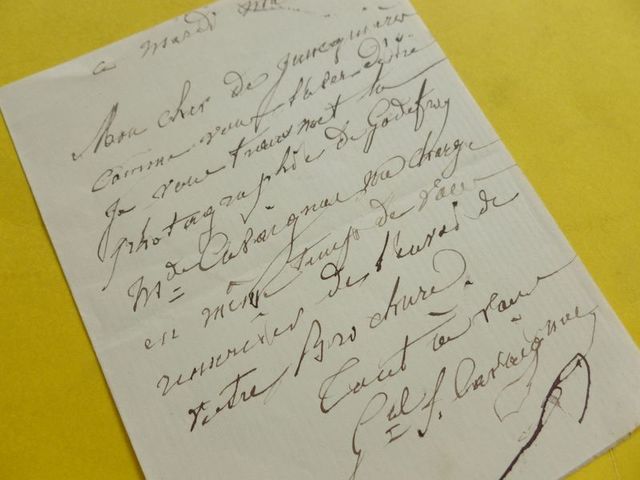 ce Mardi
Mon cher de Jonequières
Comme vous
Je vous transmet la
photographie de Godefroy
Mde Cavaignac me charge
en même temps de vous
remercier de l'envoi de
votre Brochure.
Tout à vous
Gal J. Cavaignac